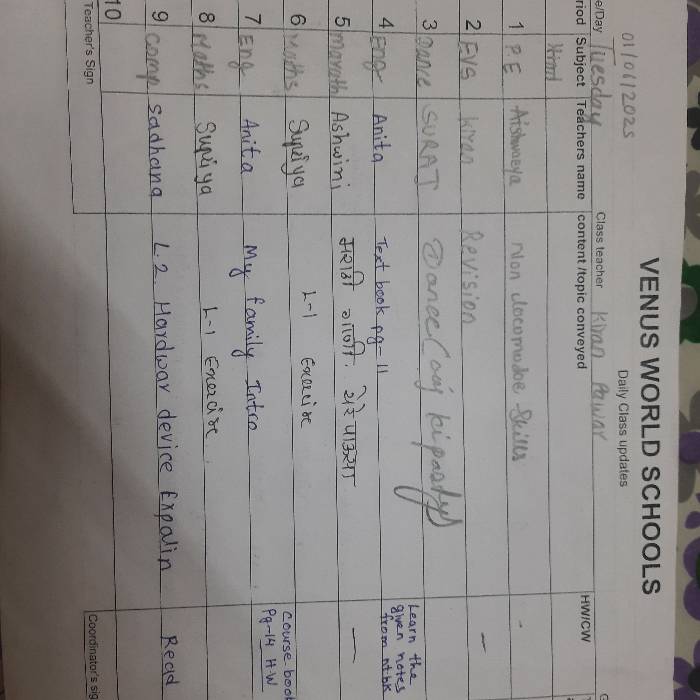 VENUS WORLD SCHOOLS
Daily Class updates
01/07/2025
e/Day Tuesday Class teacher Kiran Pawar
riod Subject Teachers name content /topic conveyed HW/CW
Hindi
1 P.E Aishwarya Non locomotor Skills -
2 EVS Kiran Revision -
3 Dance SURAJ Dance
4 Eng Anita Text book pg-11 Learn the given notes from nt.bk
5 Marath Ashwini मराठी गाणी. येरे पाऊसा -
6 Maths Supriya L-1 Exercise
7 Eng Anita My family Intro Course book Pg-14 H.W
8 Maths Supriya L-1 Exercise.
9 Comp Sadhana L.2. Hardwar device Expalin Read
10
Teacher's Sign Coordinator's sig